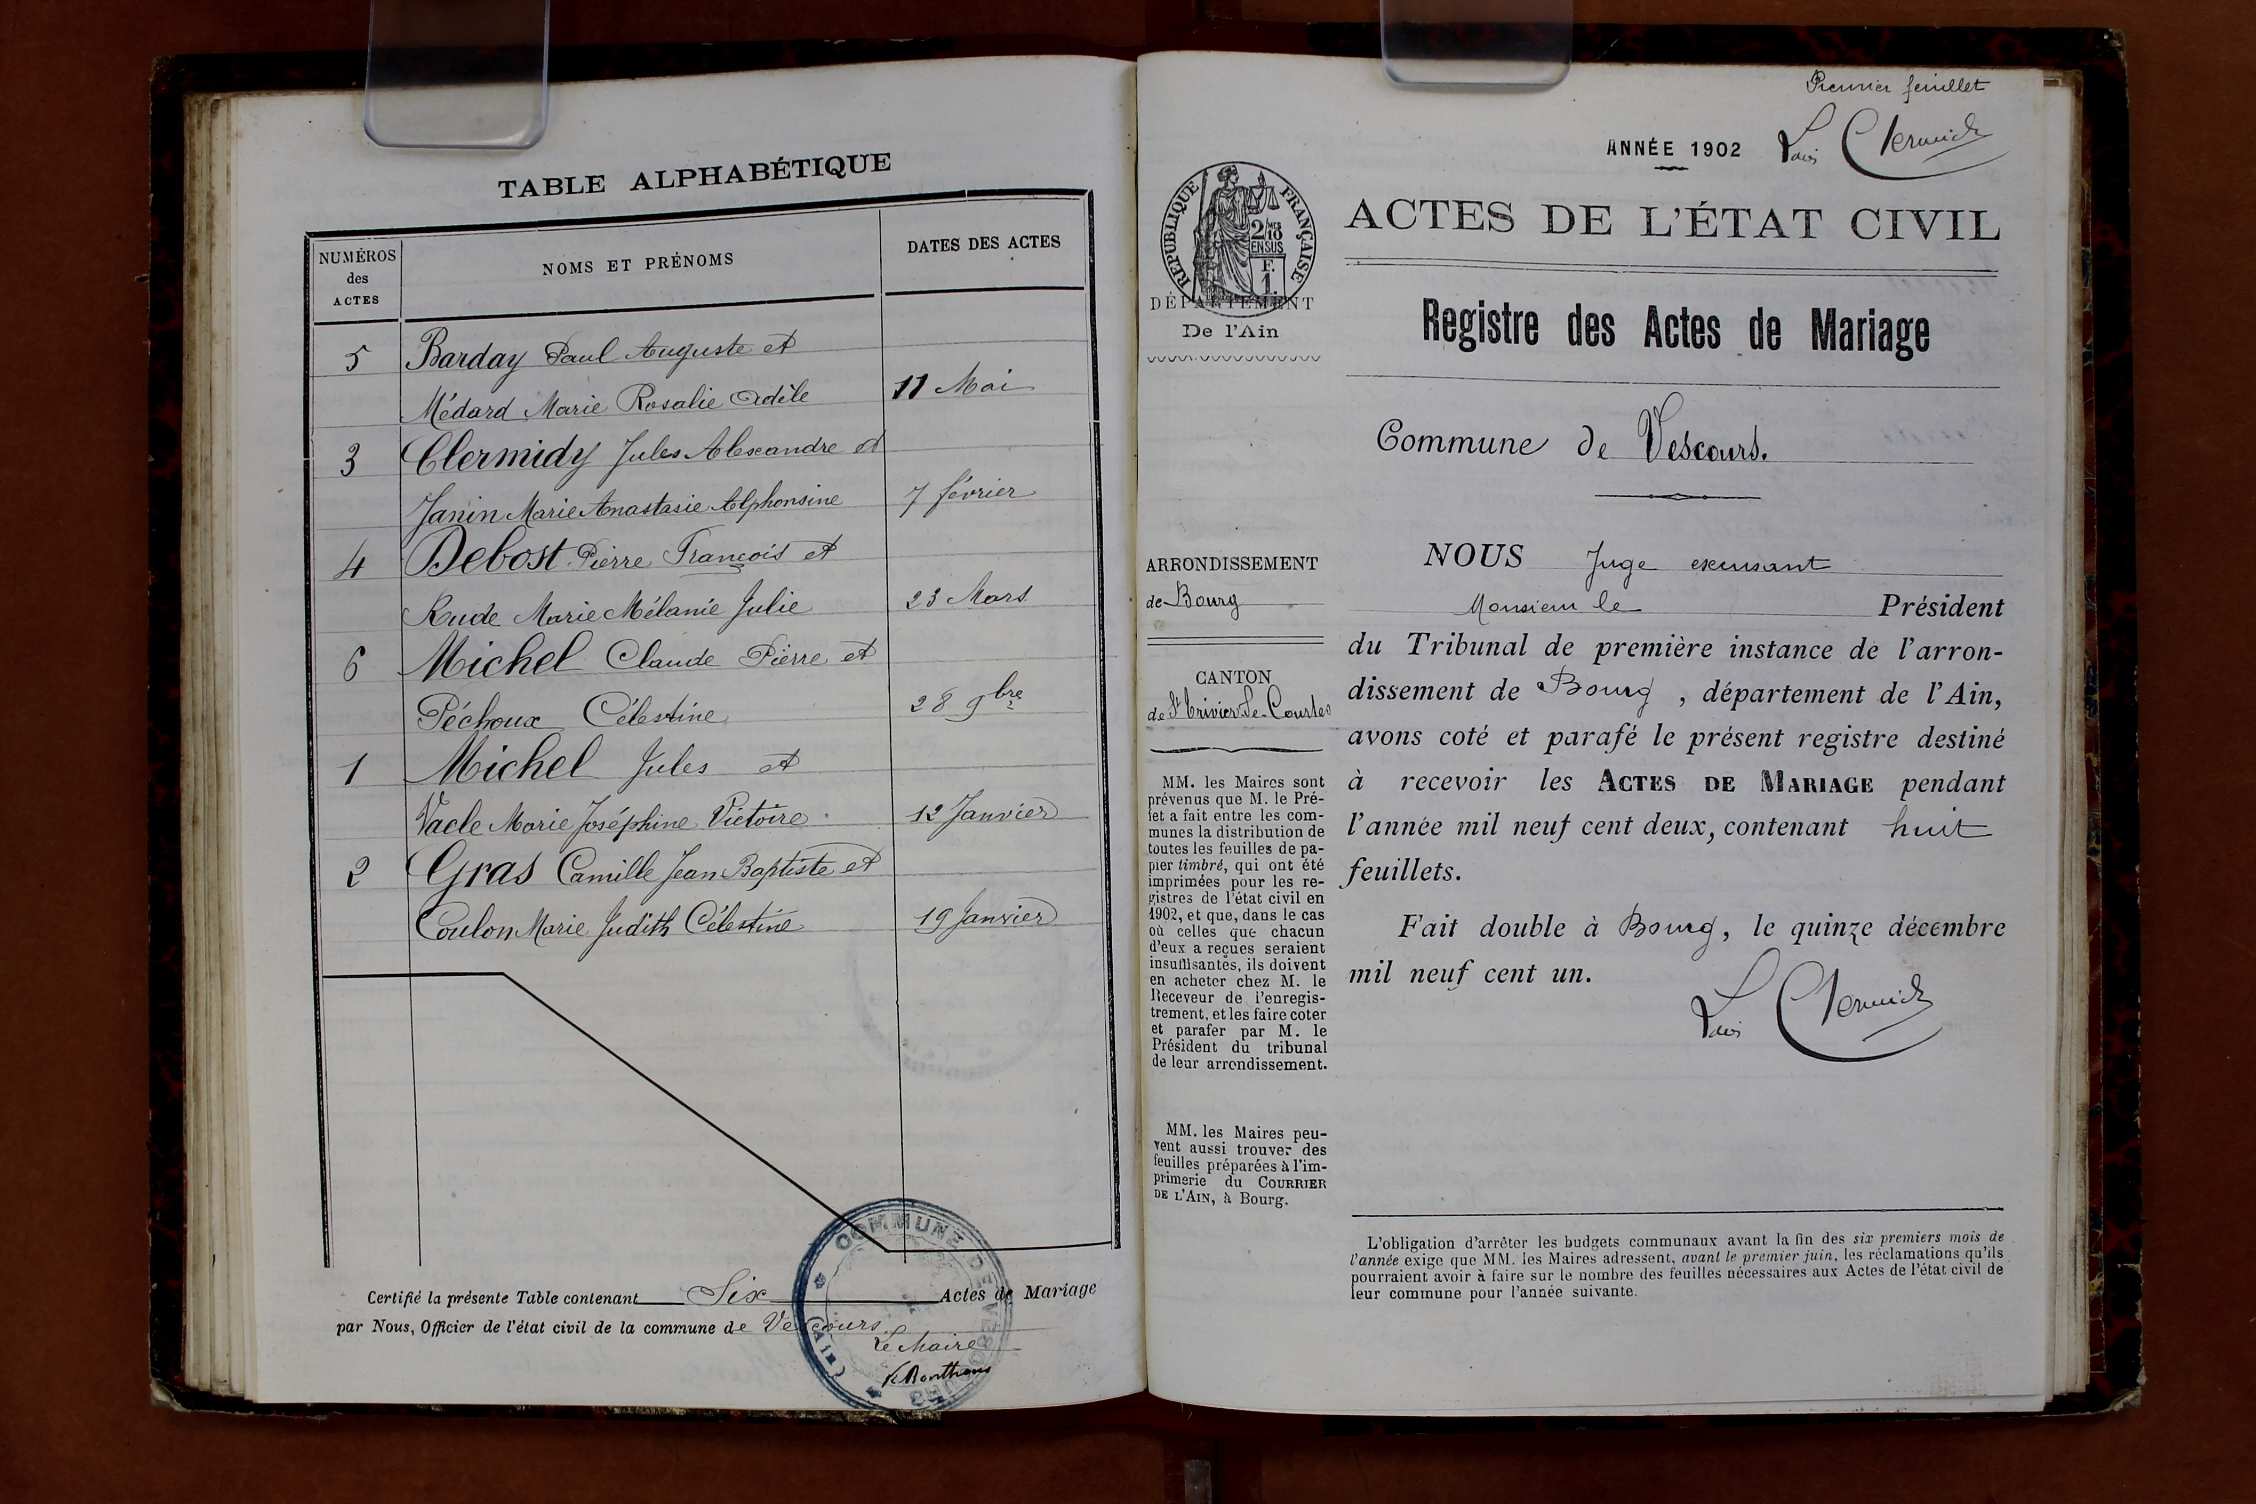 TABLE ALPHABÉTIQUE
NUMÉROS
des
ACTES
NOMS ET PRÉNOMS
DATES DES ACTES
5 Barday Paul Auguste et
Médard Marie Rosalie Adèle 11 Mai
3 Clermidy Jules Alexandre et
Janin Marie Anastasie Alphonsine 7 février
4 Debost Pierre François et
Rude Marie Mélanie Julie 23 Mars
6 Michel Claude Pierre et
Péchoux Célestine 28 9bre
1 Michel Jules et
Vacle Marie Joséphine Victoire 12 Janvier
2 Gras Camille Jean Baptiste et
Coulon Marie Judith Célestine 19 Janvier
Certifié la présente Table contenant Six Actes de Mariage
par Nous, Officier de l'état civil de la commune de Vescours
Le Maire
COMMUNE DE VESCOURS
(Ain)
Premier feuillet
ANNÉE 1902
RÉPUBLIQUE FRANÇAISE
2/10
EN SUS
F.
1.
DÉPARTEMENT
De l'Ain
ACTES DE L'ÉTAT CIVIL
Registre des Actes de Mariage
Commune de Vescours.
ARRONDISSEMENT
de Bourg
CANTON
de St Trivier-de-Courtes
MM. les Maires sont
prévenus que M. le Pré-
fet a fait entre les com-
munes la distribution de
toutes les feuilles de pa-
pier timbré, qui ont été
imprimées pour les re-
gistres de l'état civil en
1902, et que, dans le cas
où celles que chacun
d'eux a reçues seraient
insuffisantes, ils doivent
en acheter chez M. le
Receveur de l'enregis-
trement, et les faire coter
et parafer par M. le
Président du tribunal
de leur arrondissement.
MM. les Maires peu-
vent aussi trouver des
feuilles préparées à l'im-
primerie du COURRIER
DE L'AIN, à Bourg.
NOUS Juge excusant
Monsieur le Président
du Tribunal de première instance de l'arron-
dissement de Bourg, département de l'Ain,
avons coté et parafé le présent registre destiné
à recevoir les ACTES DE MARIAGE pendant
l'année mil neuf cent deux, contenant huit
feuillets.
Fait double à Bourg, le quinze décembre
mil neuf cent un.
L'obligation d'arrêter les budgets communaux avant la fin des six premiers mois de
l'année exige que MM. les Maires adressent, avant le premier juin, les réclamations qu'ils
pourraient avoir à faire sur le nombre des feuilles nécessaires aux Actes de l'état civil de
leur commune pour l'année suivante.